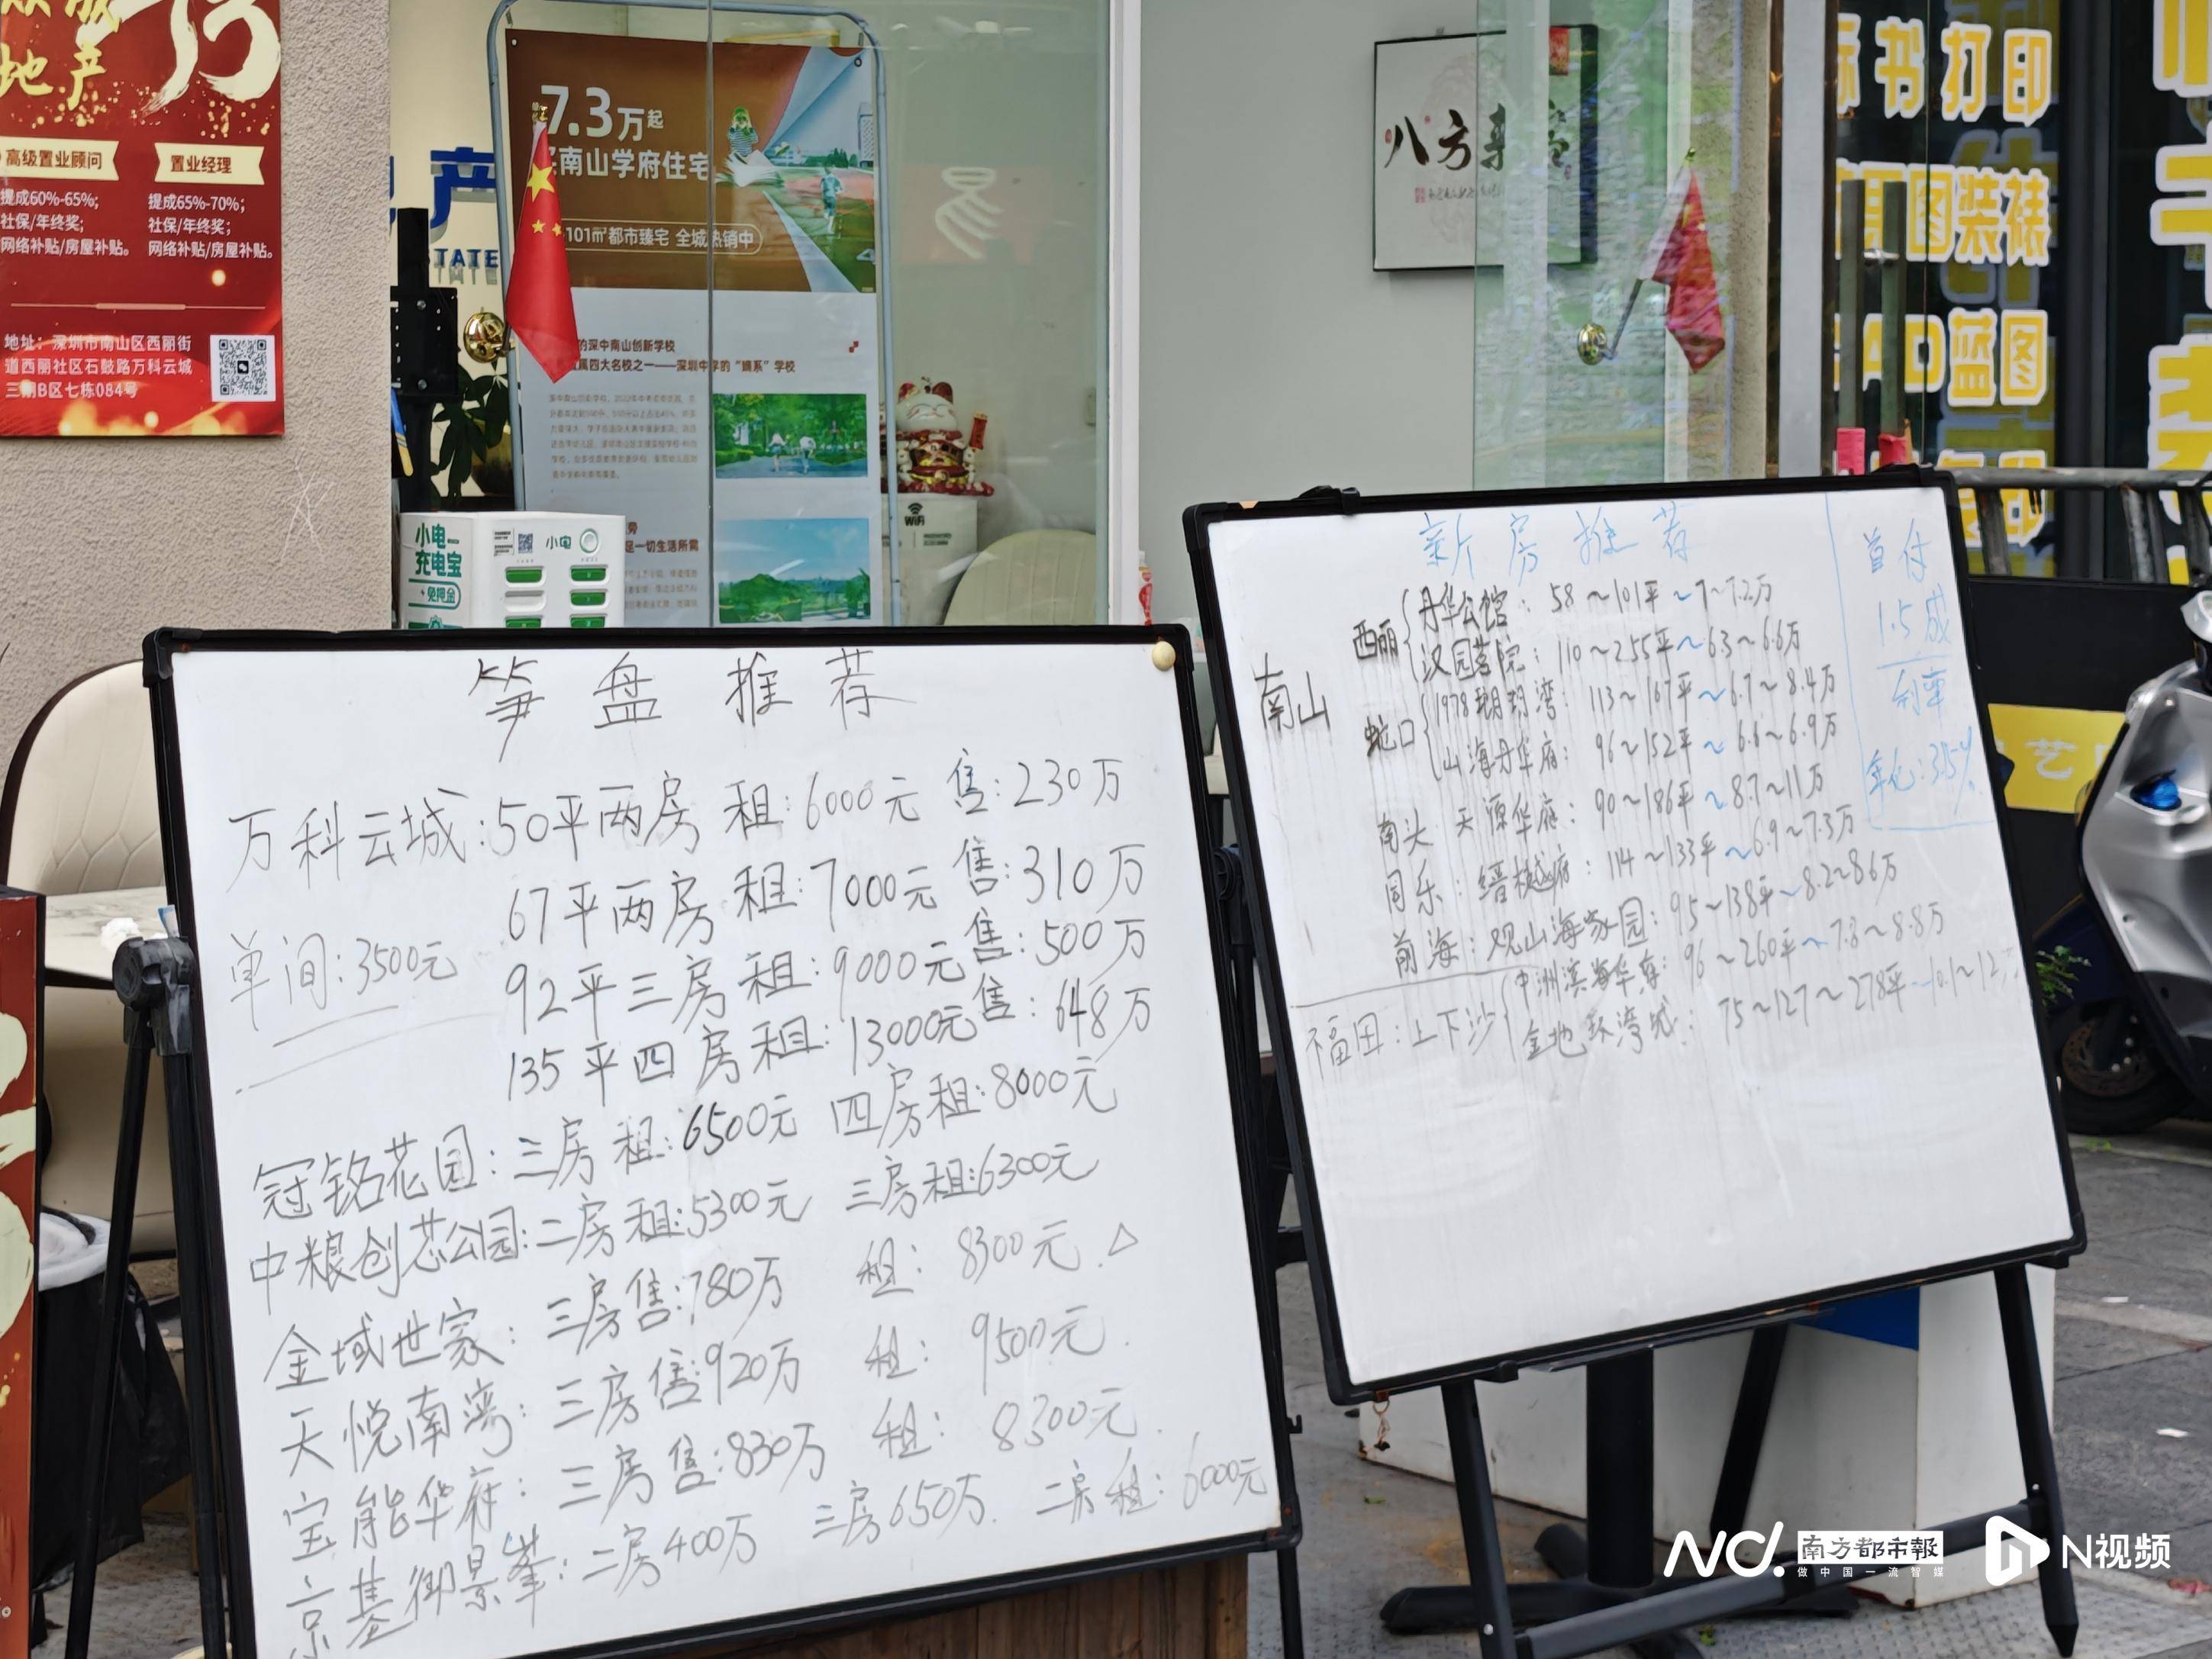 地产
高级置业顾问
提成60%-65%;
社保/年终奖;
网络补贴/房屋补贴。
置业经理
提成65%-70%;
社保/年终奖;
网络补贴/房屋补贴。
地址：深圳市南山区西丽街
道西丽社区石鼓路万科云城
三期B区七栋084号
产
STATE
7.3万起
南山学府住宅
101㎡都市臻宅 全城热销中
的深中南山创新学校
属四大名校之一——深圳中学的“嫡系”学校
足一切生活所需
小电
充电宝
免押金
小电
WiFi
易
八方来
书打印
图装裱
AD蓝图
印
笋盘推荐
万科云城:50平两房 租:6000元 售:230万
67平两房 租:7000元 售:310万
单间:3500元
92平三房 租:9000元 售:500万
135平四房 租:13000元 售:648万
冠铭花园:三房 租:6500元 四房租:8000元
中粮创芯公园:二房租:5300元 三房租:6300元
金域世家:三房售:780万 租:8300元 △
天悦南湾:三房售:920万 租:9500元
宝能华府:三房售:830万 租:8300元
京基御景峯:二房400万 三房650万 二房租:6000元
新房推荐
首付
1.5成
利率
3.5%
南山
西丽
丹华公馆:58～101平～7～7.2万
汉园茗院:110～255平～6.3～6.6万
蛇口
1978 湾:113～167平～6.7～8.4万
山海丹华府:96～152平～6.6～6.9万
南头 天源华庭:90～186平～8.7～11万
同乐:缙樾府:114～133平～6.9～7.3万
前海:观山海家园:95～138平～8.2～8.6万
福田:上下沙
中洲滨海华府:96～260平～7.8～8.8万
金地环湾城:75～127～278平～10.1～12万
艺
南方都市报
做中国一流智媒
N视频